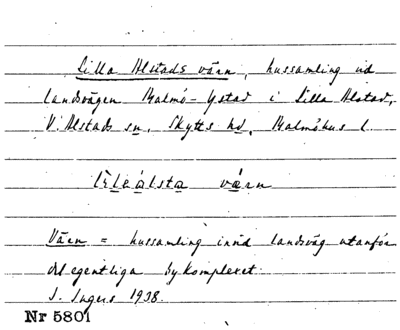 Lilla Alstads värn, hussamling vid
landsvägen Malmö-Ystad i Lilla Alstad,
V. Alstads sn. Skytts hd, Malmöhus l.
värn
Värn = hussamling invid landsväg utanför
det egentliga bykomplexet.
I. Ingers 1938.
Nr 5801